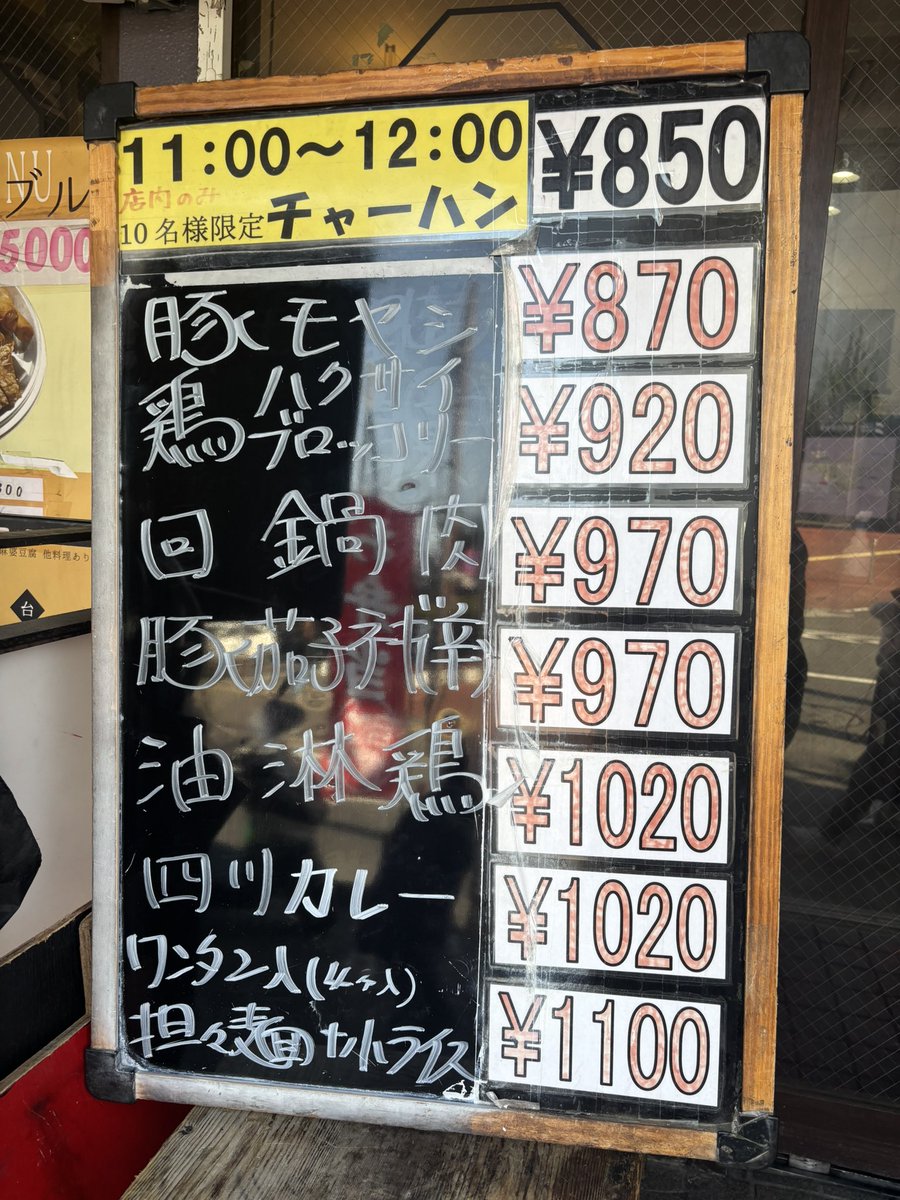 11:00～12:00 ¥850
店内のみ
10名様限定 チャーハン
豚くモヤシ ¥870
鶏 ハクサイ ¥920
ブロッコリー
回鍋肉 ¥970
豚く茄子ネギ(辛) ¥970
油淋鶏 ¥1020
四川カレー ¥1020
ワンタン入(4ヶ入)
担々麺+小ライス ¥1100
NU
ブル
5000
800
麻婆豆腐 他料理あり
台